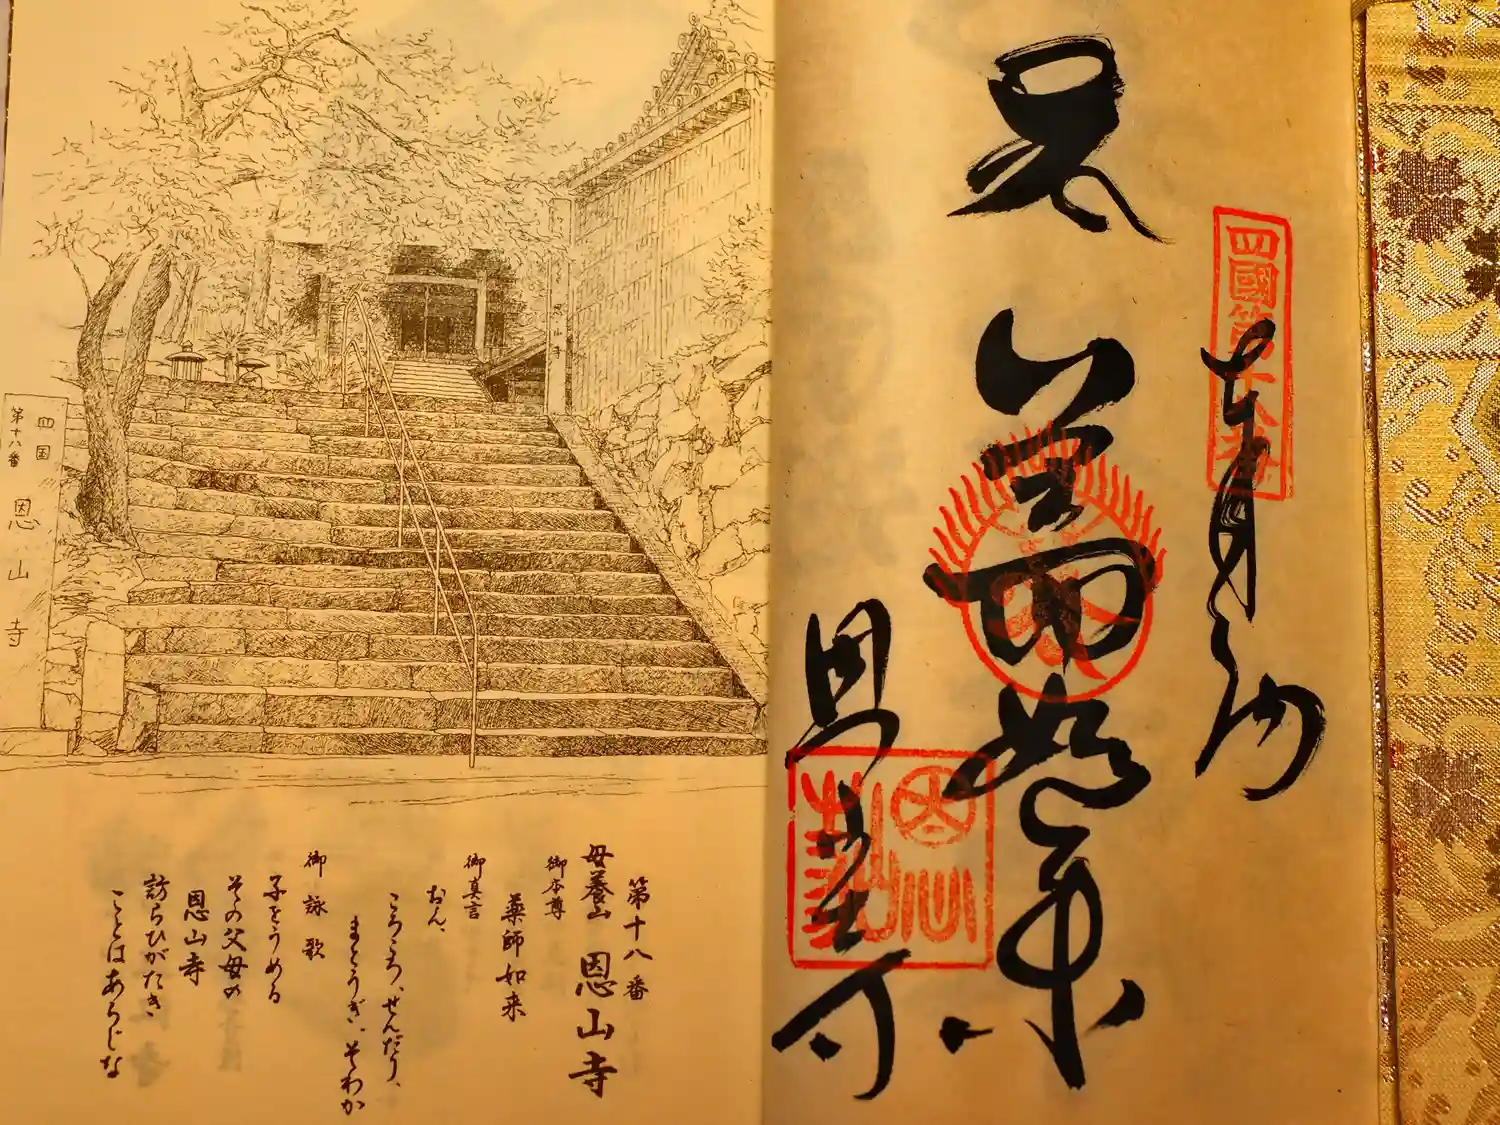 四国
第十八番
恩山寺
第十八番
母養山 恩山寺
御本尊
薬師如来
御真言
おん、
ころころ、せんだり、
まとうぎ、そわか
御詠歌
子をうめる
その父母の
恩山寺
訪らひがたき
ことはあらじな
四國第十八番
奉納
薬師如来
恩山寺